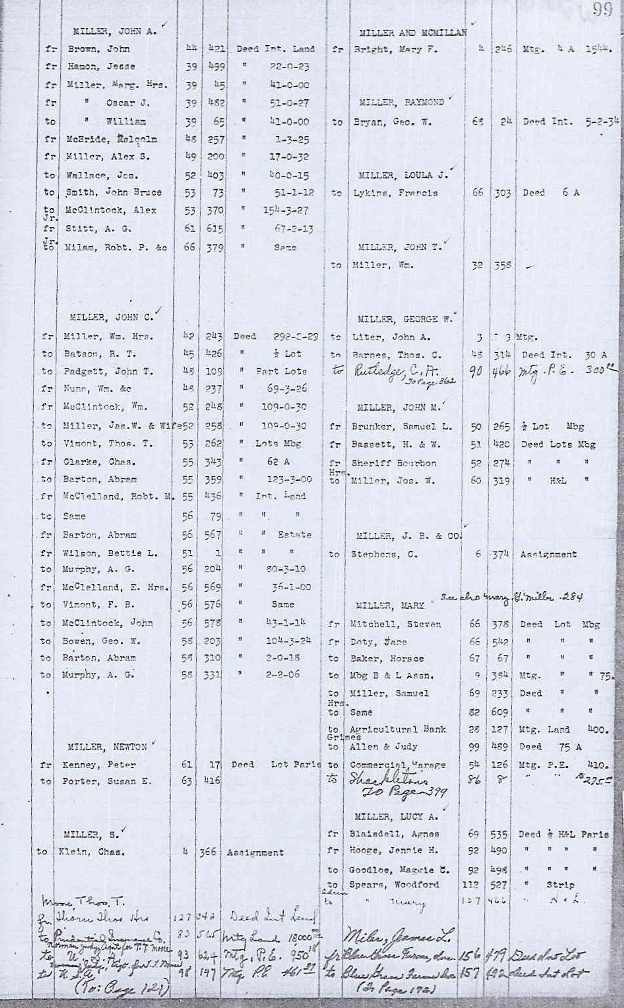 99
MILLER, JOHN A.
fr Brown, John 44 421 Deed Int. Land
fr Hamon, Jesse 39 499 " 22-0-23
fr Miller, Marg. Hrs. 39 45 " 41-0-00
fr " Oscar J. 39 482 " 51-0-27
to " William 39 65 " 41-0-00
fr McBride, Malcolm 48 257 " 1-3-25
fr Miller, Alex S. 49 200 " 17-0-32
to Wallace, Jos. 52 403 " 40-0-15
to Smith, John Bruce 53 73 " 51-1-12
to McClintock, Alex 53 370 " 154-3-27
Jr.
fr Stitt, A. G. 61 615 " 67-2-13
Jr.
to Milam, Robt. P. &c 66 379 " Same
MILLER, JOHN C.
fr Miller, Wm. Hrs. 42 243 Deed 292-2-29
to Batson, R. T. 45 426 " ½ Lot
to Padgett, John T. 48 109 " Part Lots
fr Nunn, Wm. &c 48 237 " 69-3-26
fr McClintock, Wm. 52 248 " 109-0-30
to Miller, Jas.W. & Wife 52 258 " 109-0-30
to Vimont, Thos. T. 53 262 " Lots Mbg
fr Clarke, Chas. 55 343 " 62 A
to Barton, Abram 55 359 " 123-3-00
fr McClelland, Robt. M. 55 436 " Int. Land
to Same 56 79 " " "
fr Barton, Abram 56 567 " " Estate
fr Wilson, Bettie L. 51 1 " " "
to Murphy, A. G. 56 204 " 80-3-10
fr McClelland, E. Hrs. 56 569 " 36-1-00
to Vimont, F. B. 56 576 " Same
to McClintock, John 56 578 " 43-1-14
to Bowen, Geo. W. 58 203 " 104-3-24
to Barton, Abram 58 310 " 2-0-18
to Murphy, A. G. 58 331 " 2-2-06
MILLER, NEWTON
fr Kenney, Peter 61 17 Deed Lot Paris
to Porter, Susan E. 63 416
MILLER, S.
to Klein, Chas. 4 366 Assignment
Moore Thos. T.
fr Thorn Thos Hrs 127 Deed Int Land
to Prudential Insurance Co. 83 565 Mtg Land 18000
to 93 624 Mtg. P.E. 950
to U.S.A. 98 147 Mtg PE
(To: Page 121)
MILLER AND MCMILLAN
fr Bright, Mary F. 4 246 Mtg. 4 A 1544.
MILLER, RAYMOND
to Bryan, Geo. W. 68 24 Deed Int. 5-2-34
MILLER, LOULA J.
to Lykins, Francis 66 303 Deed 6 A
MILLER, JOHN T.
to Miller, Wm. 32 358 -
MILLER, GEORGE W.
to Liter, John A. 3 Mtg.
to Barnes, Thos. C. 48 314 Deed Int. 30 A
to Rutledge, C. A. 90 466 Mtg. P.E. 300
To Page 262
MILLER, JOHN M.
fr Brunker, Samuel L. 50 265 ½ Lot Mbg
fr Bassett, H. & W. 51 420 Deed Lots Mbg
fr Sheriff Bourbon 52 274 " " "
Hrs.
to Miller, Jos. W. 60 319 " H&L "
MILLER, J. B. & CO.
to Stephens, C. 6 374 Assignment
See also Mary G. Miller - 284
MILLER, MARY
fr Mitchell, Steven 66 378 Deed Lot Mbg
fr Doty, Jane 66 542 " " "
to Baker, Horace 67 67 " " "
to Mbg B & L Assn. 9 384 Mtg. " " 75.
to Miller, Samuel 69 233 Deed " "
Hrs.
to Same 82 609 " " "
to Agricultural Bank 28 127 Mtg. Land 400.
Grimes
to Allen & Judy 99 489 Deed 75 A
to Commercial Garage 54 126 Mtg. P.E. 410.
to Shackletons 86 8 " " $275
To Page 399
MILLER, LUCY A.
fr Blaisdell, Agnes 69 535 Deed ½ H&L Paris
fr Hooge, Jennie H. 92 490 " " " "
to Goodloe, Maggie C. 92 498 " " " "
to Spears, Woodford 112 527 " Strip
Admr
to " Mary 127 466 " H & L "
Miler, James L.
fr Blue Grass Farms, Inc 156 479 Deed Int Lot
to Blue Grass Farms Inc 157 492 Deed Int Lot